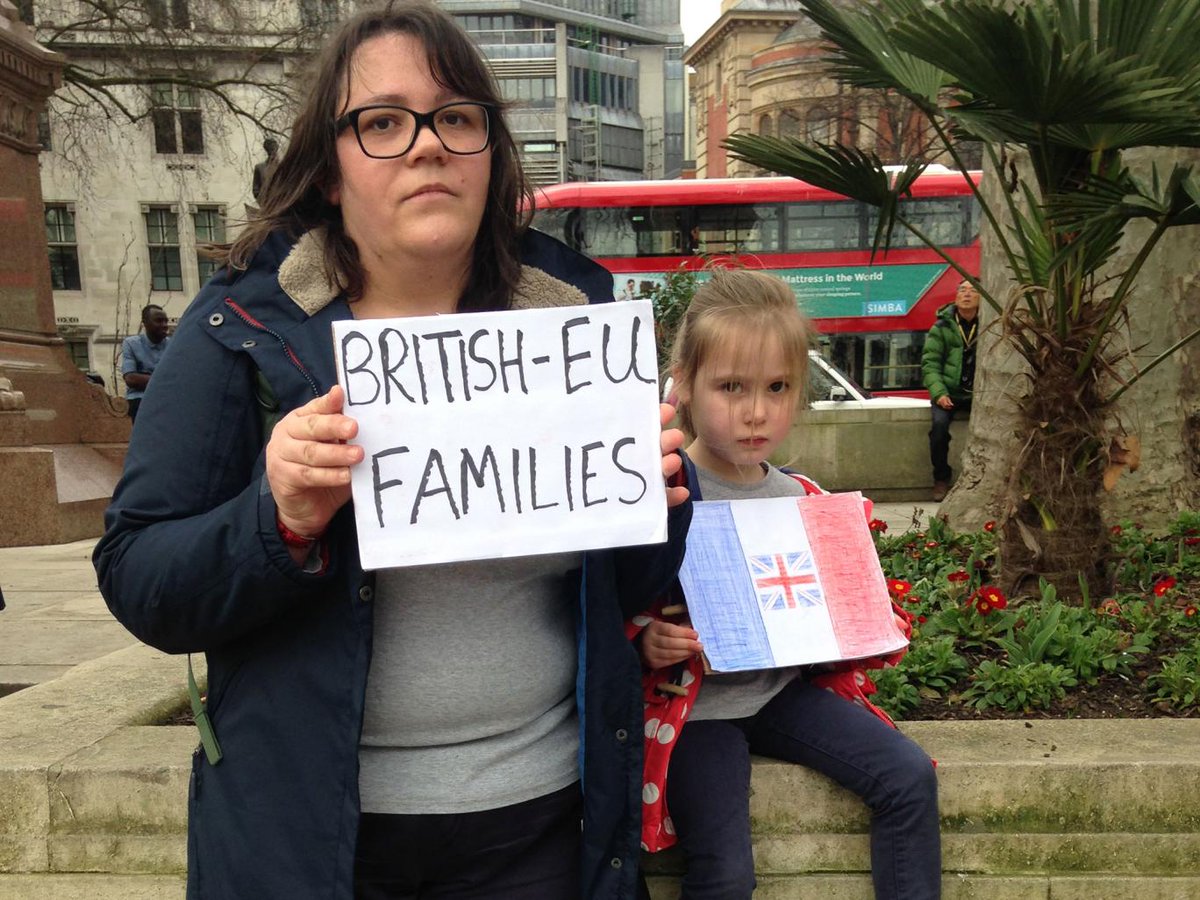 BRITISH-EU
FAMILIES
Mattress in the World
SIMBA